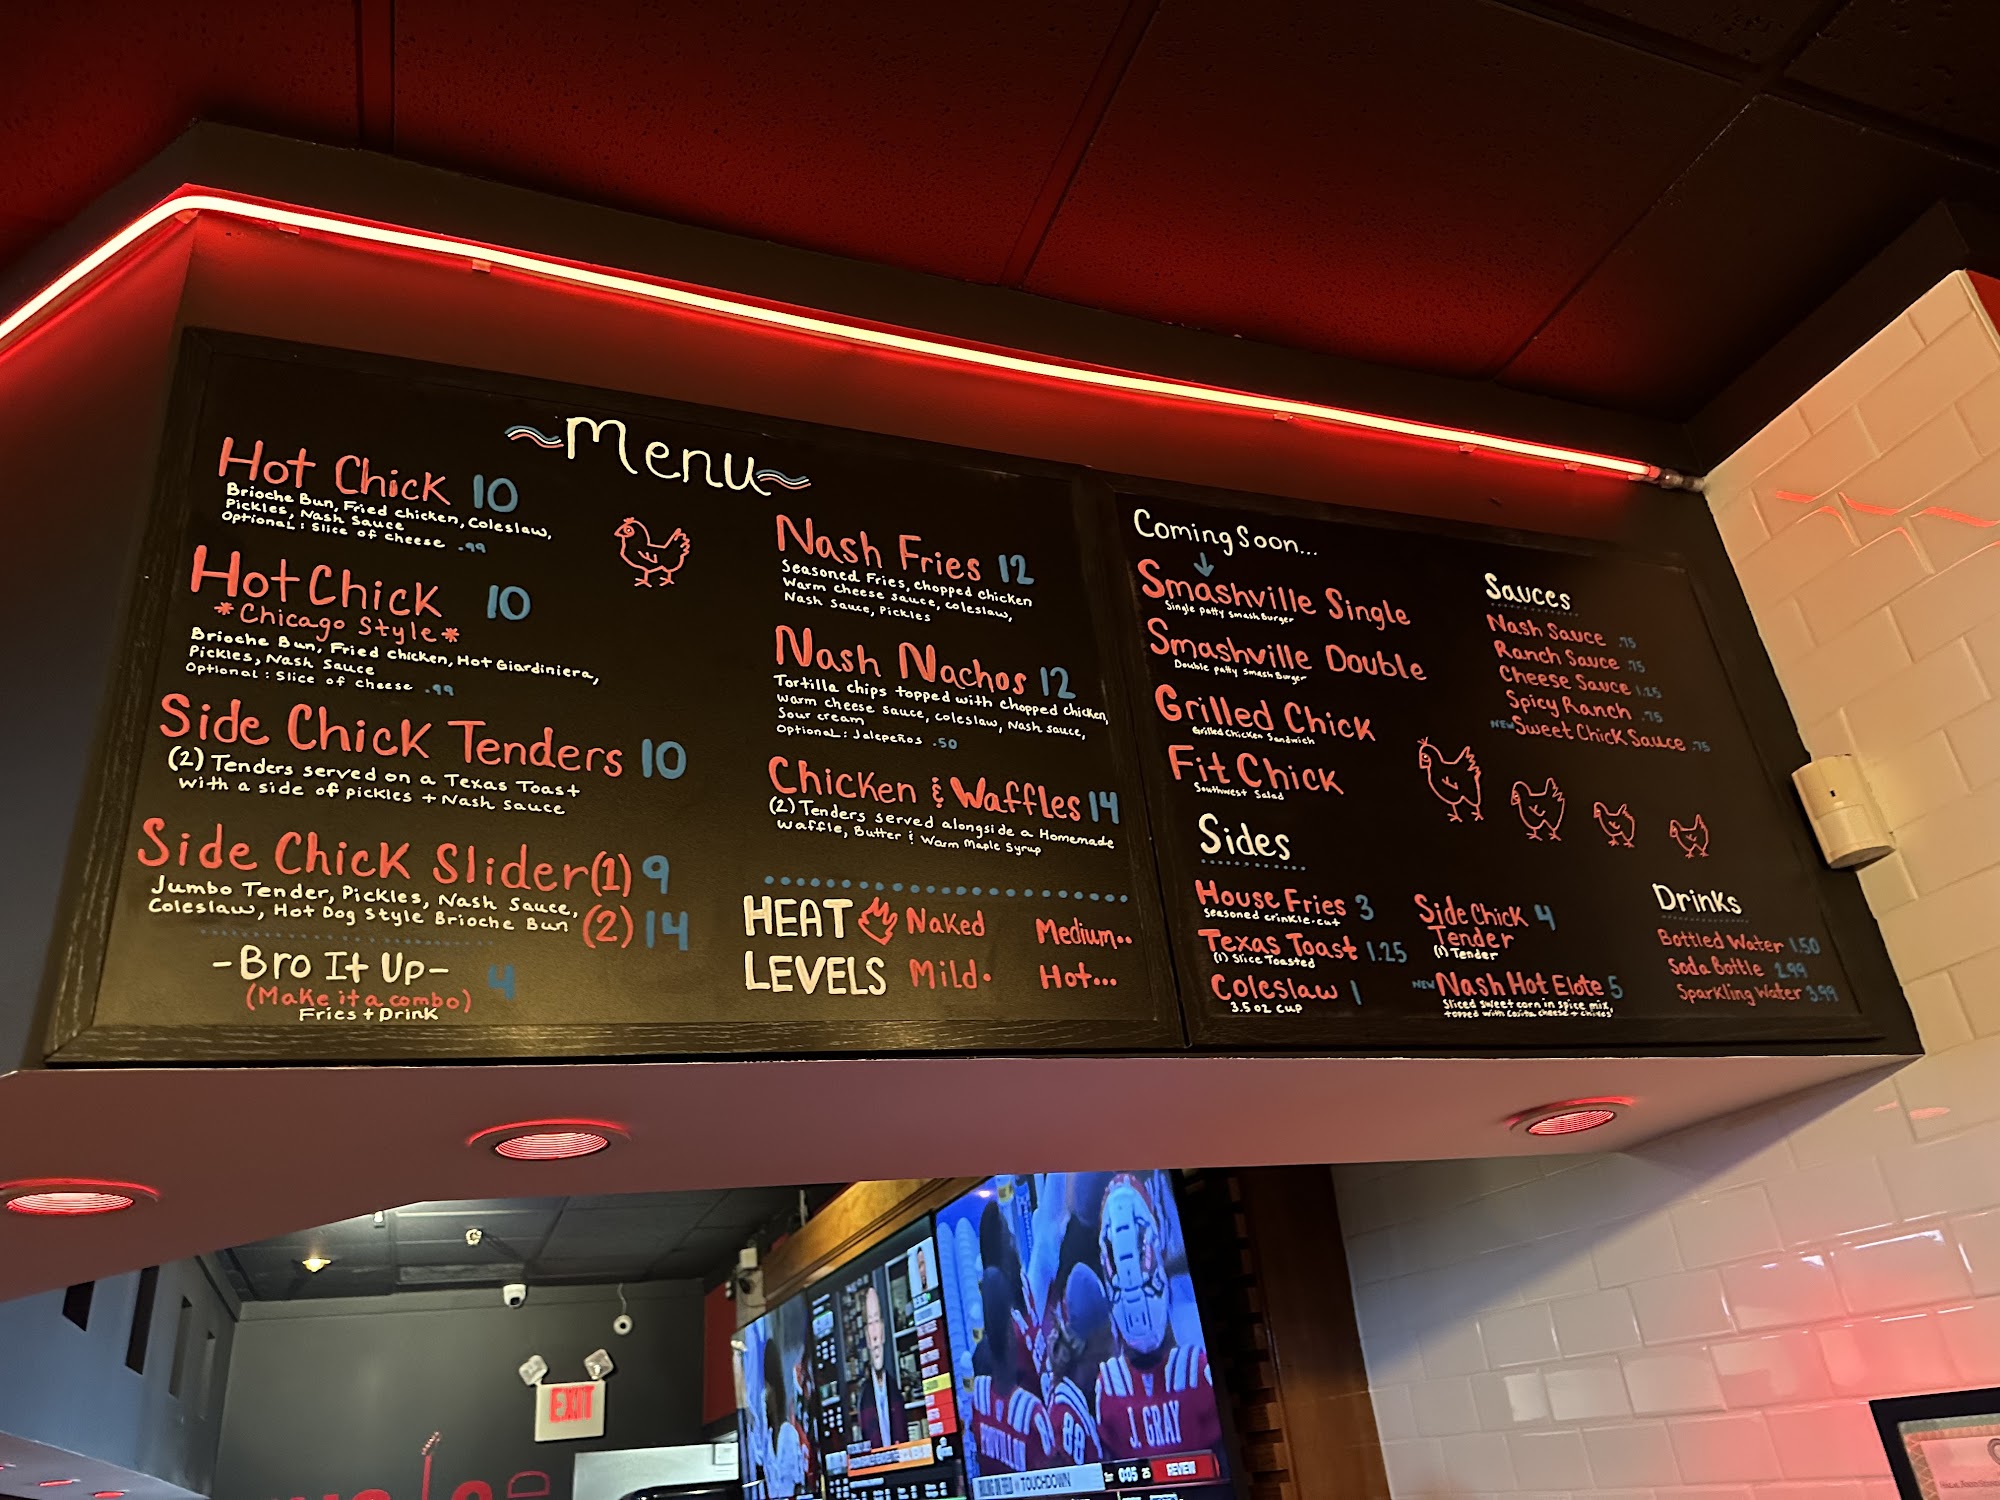 ~Menu~
Hot Chick 10
Brioche Bun, Fried chicken, Coleslaw,
Pickles, Nash Sauce
Optional: Slice of cheese .99
Hot Chick 10
*Chicago Style*
Brioche Bun, Fried chicken, Hot Giardiniera,
Pickles, Nash Sauce
Optional: Slice of cheese .99
Side Chick Tenders 10
(2) Tenders served on a Texas Toast
with a side of pickles + Nash sauce
Side Chick Slider (1) 9
Jumbo Tender, Pickles, Nash Sauce,
Coleslaw, Hot Dog Style Brioche Bun (2) 14
-Bro It Up- 4
(Make it a combo)
Fries + Drink
Nash Fries 12
Seasoned Fries, chopped chicken
Warm cheese sauce, coleslaw,
Nash Sauce, Pickles
Nash Nachos 12
Tortilla chips topped with chopped chicken,
warm cheese sauce, coleslaw, Nash sauce,
Sour cream
Optional: Jalepeños .50
Chicken & Waffles 14
(2) Tenders served alongside a Homemade
Waffle, Butter & Warm Maple Syrup
HEAT LEVELS
Naked
Medium..
Mild.
Hot...
Coming Soon...
Smashville Single
Single patty smash burger
Smashville Double
Double patty smash burger
Grilled Chick
Grilled chicken sandwich
Fit Chick
Southwest Salad
Sides
House Fries 3
Seasoned crinkle-cut
Texas Toast 1.25
(1) Slice Toasted
Coleslaw 1
3.5 oz cup
Side Chick 4
Tender
(1) Tender
NEW Nash Hot Elote 5
Sliced sweet corn in spice mix,
topped with Cojita cheese + chives
Sauces
Nash Sauce .75
Ranch Sauce .75
Cheese Sauce 1.25
Spicy Ranch .75
NEW Sweet Chick Sauce .75
Drinks
Bottled Water 1.50
Soda Bottle 2.99
Sparkling Water 3.99
EXIT
J. GRAY
88
RULING ON FIELD TOUCHDOWN
0:05 25
REVIEW